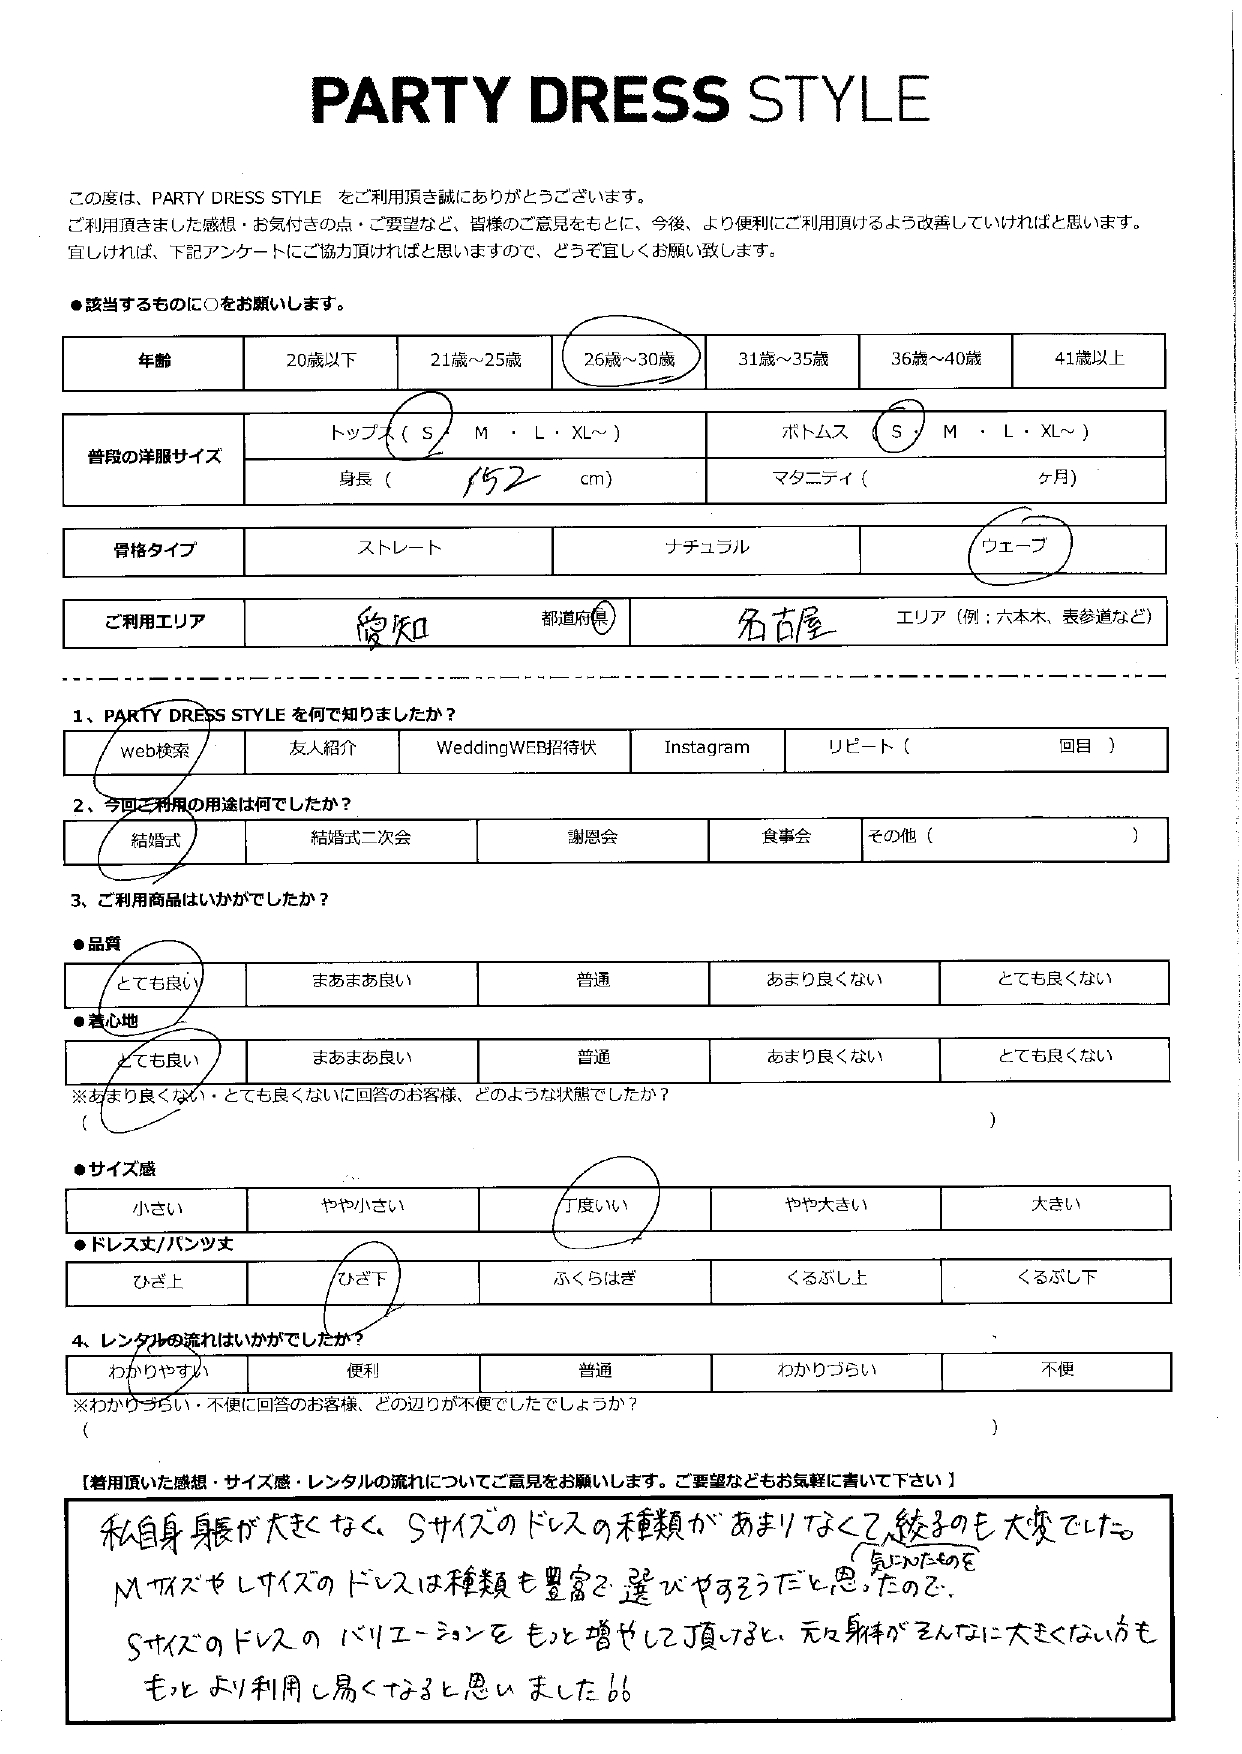 PARTY DRESS STYLE
この度は、PARTY DRESS STYLE をご利用頂き誠にありがとうございます。
ご利用頂きました感想・お気付きの点・ご要望など、皆様のご意見をもとに、今後、より便利にご利用頂けるよう改善していければと思います。
宜しければ、下記アンケートにご協力頂ければと思いますので、どうぞ宜しくお願い致します。
●該当するものに○をお願いします。
年齢 20歳以下 21歳～25歳 26歳～30歳 31歳～35歳 36歳～40歳 41歳以上
普段の洋服サイズ トップス ( S ・ M ・ L ・ XL～ ) ボトムス ( S ・ M ・ L ・ XL～ )
身長 ( 152 cm) マタニティ ( ヶ月)
骨格タイプ ストレート ナチュラル ウェーブ
ご利用エリア 愛知 都道府県 名古屋 エリア（例；六本木、表参道など）
1、PARTY DRESS STYLE を何で知りましたか？
web検索 友人紹介 WeddingWEB招待状 Instagram リピート ( 回目 )
2、今回ご利用の用途は何でしたか？
結婚式 結婚式二次会 謝恩会 食事会 その他 ( )
3、ご利用商品はいかがでしたか？
●品質
とても良い まあまあ良い 普通 あまり良くない とても良くない
●着心地
とても良い まあまあ良い 普通 あまり良くない とても良くない
※あまり良くない・とても良くないに回答のお客様、どのような状態でしたか？
( )
●サイズ感
小さい やや小さい 丁度いい やや大きい 大きい
●ドレス丈/パンツ丈
ひざ上 ひざ下 ふくらはぎ くるぶし上 くるぶし下
4、レンタルの流れはいかがでしたか？
わかりやすい 便利 普通 わかりづらい 不便
※わかりづらい・不便に回答のお客様、どの辺りが不便でしたでしょうか？
( )
【着用頂いた感想・サイズ感・レンタルの流れについてご意見をお願いします。ご要望などもお気軽に書いて下さい】
私自身 身長が大きくなく、Sサイズのドレスの種類があまりなくて、絞るのも大変でした。
気に入ったものを
MサイズやLサイズのドレスは種類も豊富で選びやすそうだと思ったので、
Sサイズのドレスのバリエーションをもっと増やして頂けると、元々身体がそんなに大きくない方も
もっとより利用し易くなると思いました!!